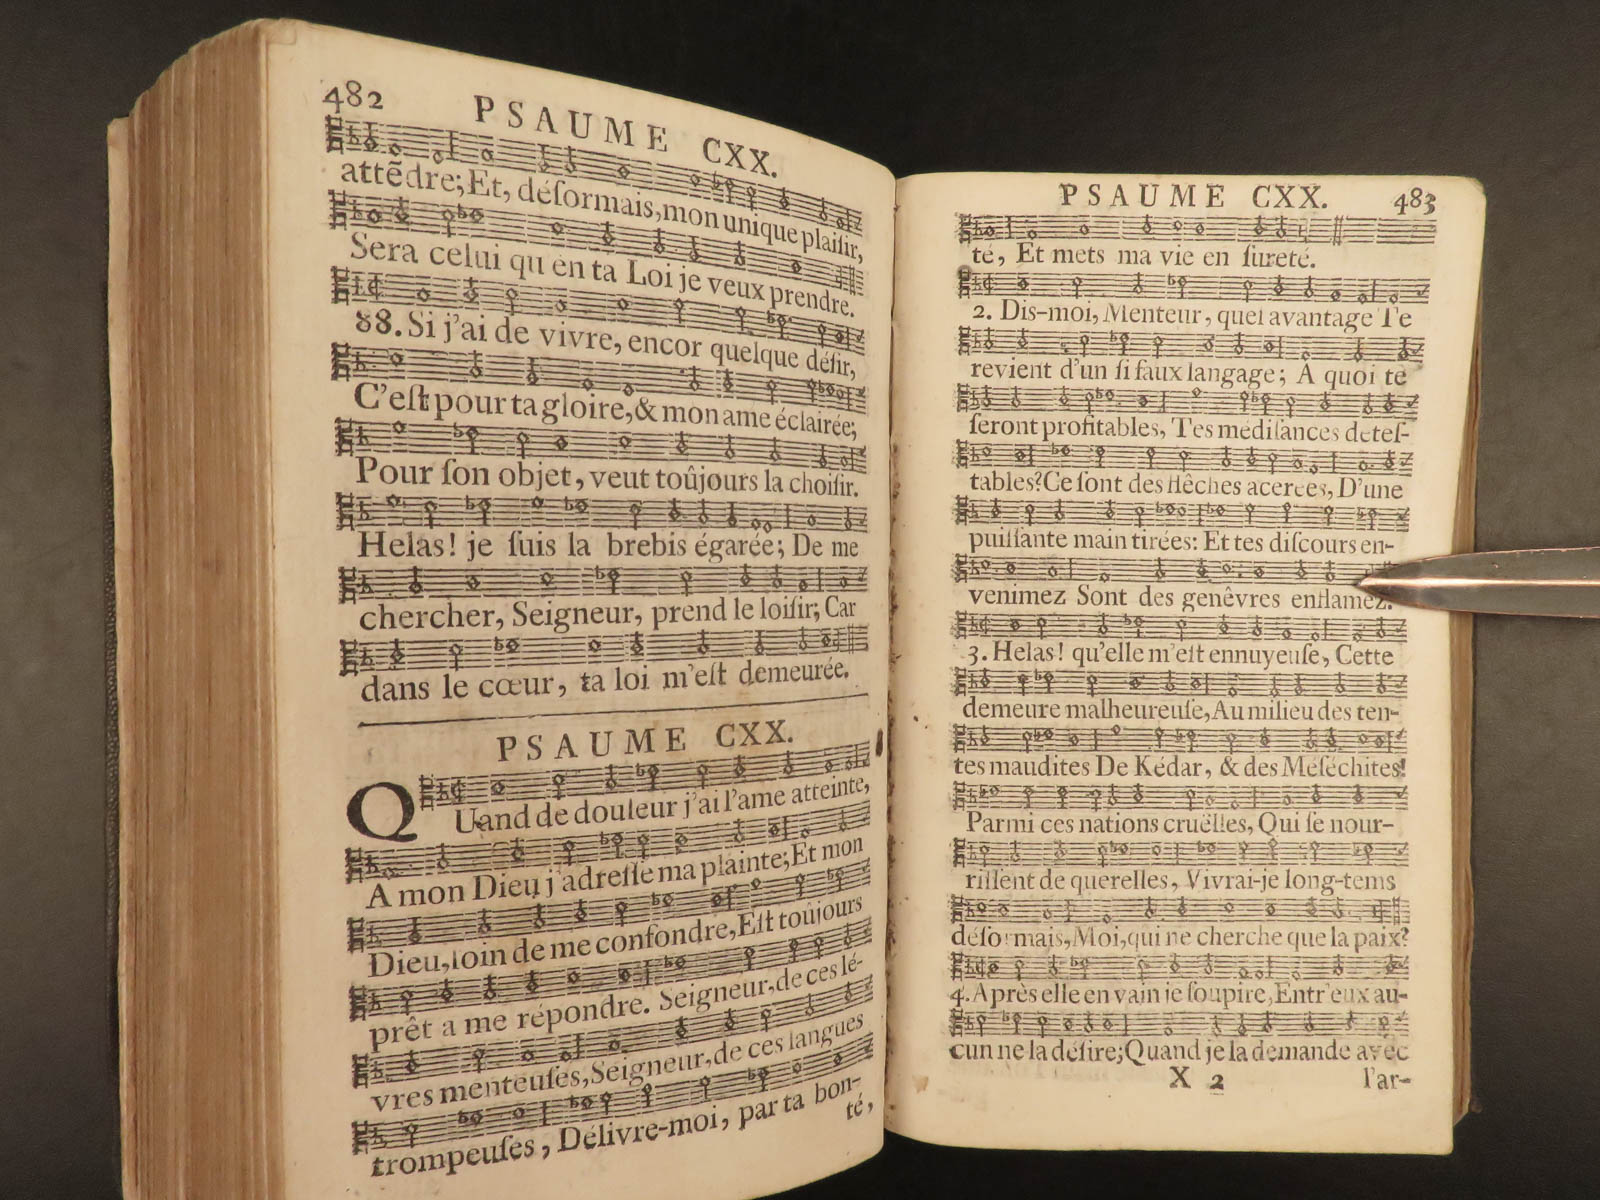 482
PSAUME CXX.
attẽdre; Et, déſormais, mon unique plaiſir,
Sera celui qu'en ta Loi je veux prendre.
88. Si j'ai de vivre, encor quelque déſir,
C'eſt pour ta gloire, & mon ame éclairée;
Pour ſon objet, veut toûjours la choiſir.
Helas! je ſuis la brebis égarée; De me
chercher, Seigneur, prend le loiſir; Car
dans le cœur, ta loi m'eſt demeurée.
PSAUME CXX.
QUand de douleur j'ai l'ame atteinte,
A mon Dieu j'adreſſe ma plainte; Et mon
Dieu, loin de me confondre, Eſt toujours
prêt a me répondre. Seigneur, de ces lé-
vres menteuſes, Seigneur, de ces langues
trompeuſes, Délivre-moi, par ta bon-
té,
PSAUME CXX.
483
té, Et mets ma vie en ſureté.
2. Dis-moi, Menteur, quel avantage Te
revient d'un ſi faux langage; A quoi te
ſeront profitables, Tes médiſances déteſ-
tables? Ce ſont des flêches acerées, D'une
puiſſante main tirées: Et tes diſcours en-
venimez Sont des genêvres enflamez.
3. Helas! qu'elle m'eſt ennuyeuſe, Cette
demeure malheureuſe, Au milieu des ten-
tes maudites De Kédar, & des Méſéchites!
Parmi ces nations cruëlles, Qui ſe nour-
riſſent de querelles, Vivrai-je long-tems
déſormais, Moi, qui ne cherche que la paix?
4. Après elle en vain je ſoupire, Entr'eux au-
cun ne la déſire; Quand je la demande avec
X 2
l'ar-